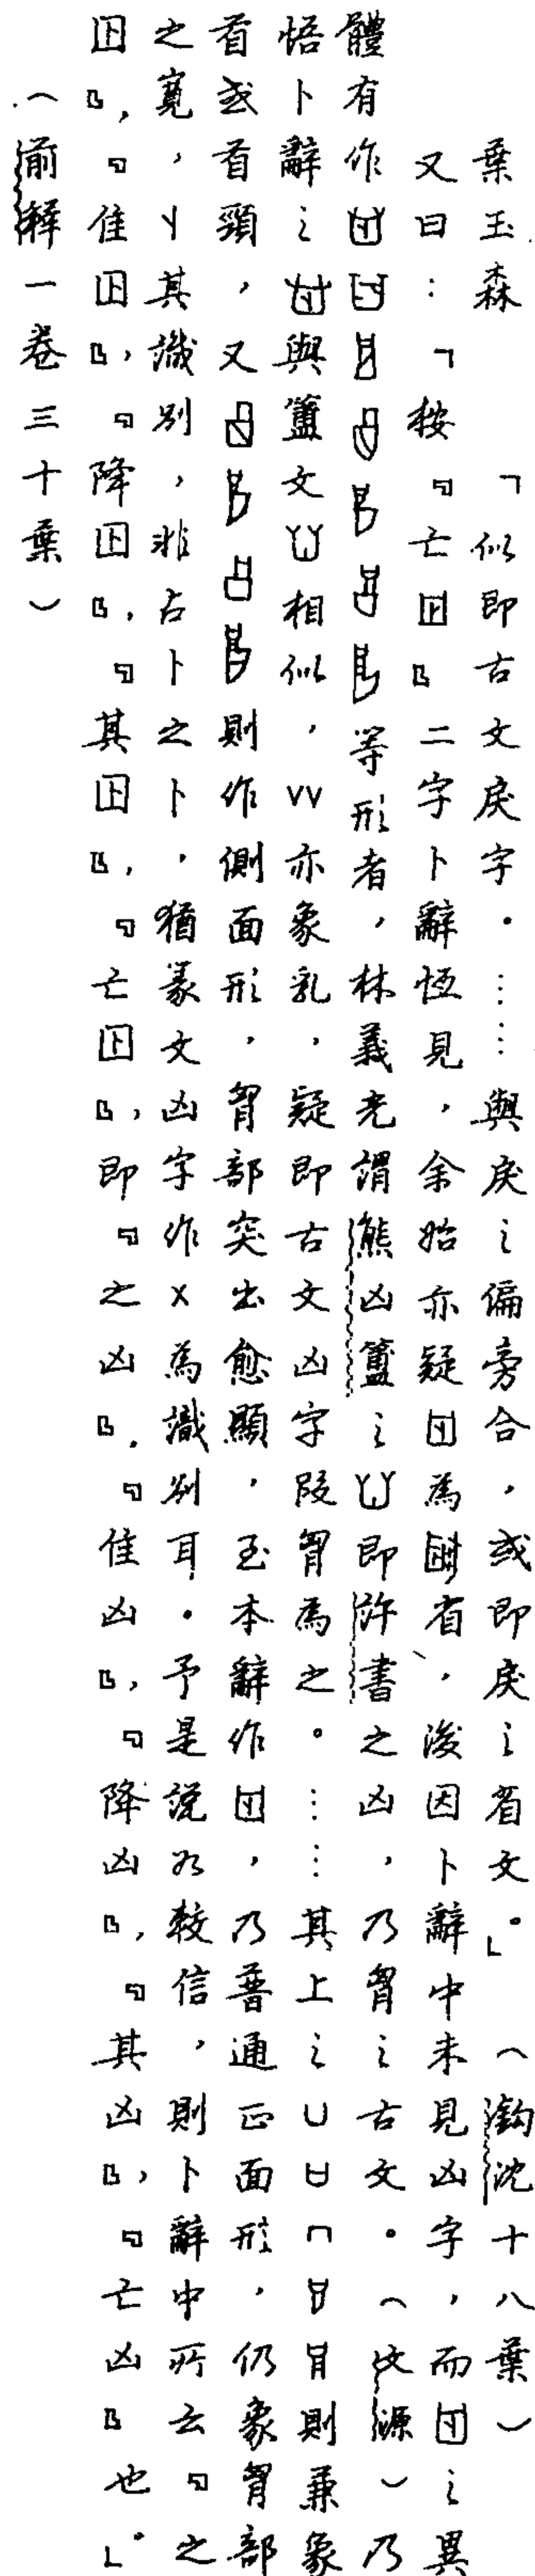 葉玉森 「似即古文戾字。……與戾之偏旁合,或即戾之省文。」(鉤沈十八葉)
又曰:「按『亡』二字卜辭恆見,余始亦疑為省,後因卜辭中未見凶字,而之異
體有作等形者,林義光謂熊凶簠之即許書之凶,乃胷之古文。(文源)乃
悟卜辭之與簠文相似,亦象乳,疑即古文凶字叚胷為之。……其上之則兼象
首或首頸,又則作側面形,胷部突出愈顯,至本辭作,乃普通正面形,仍象胷部
之寬,丫其識別,非占卜之卜,猶篆文凶字作X為識別耳。予是說如較信,則卜辭中所云『之
』,『隹』,『降』,『其』,『亡』,即『之凶』,『隹凶』,『降凶』,『其凶』,『亡凶』也。」
(前釋一卷三十葉)